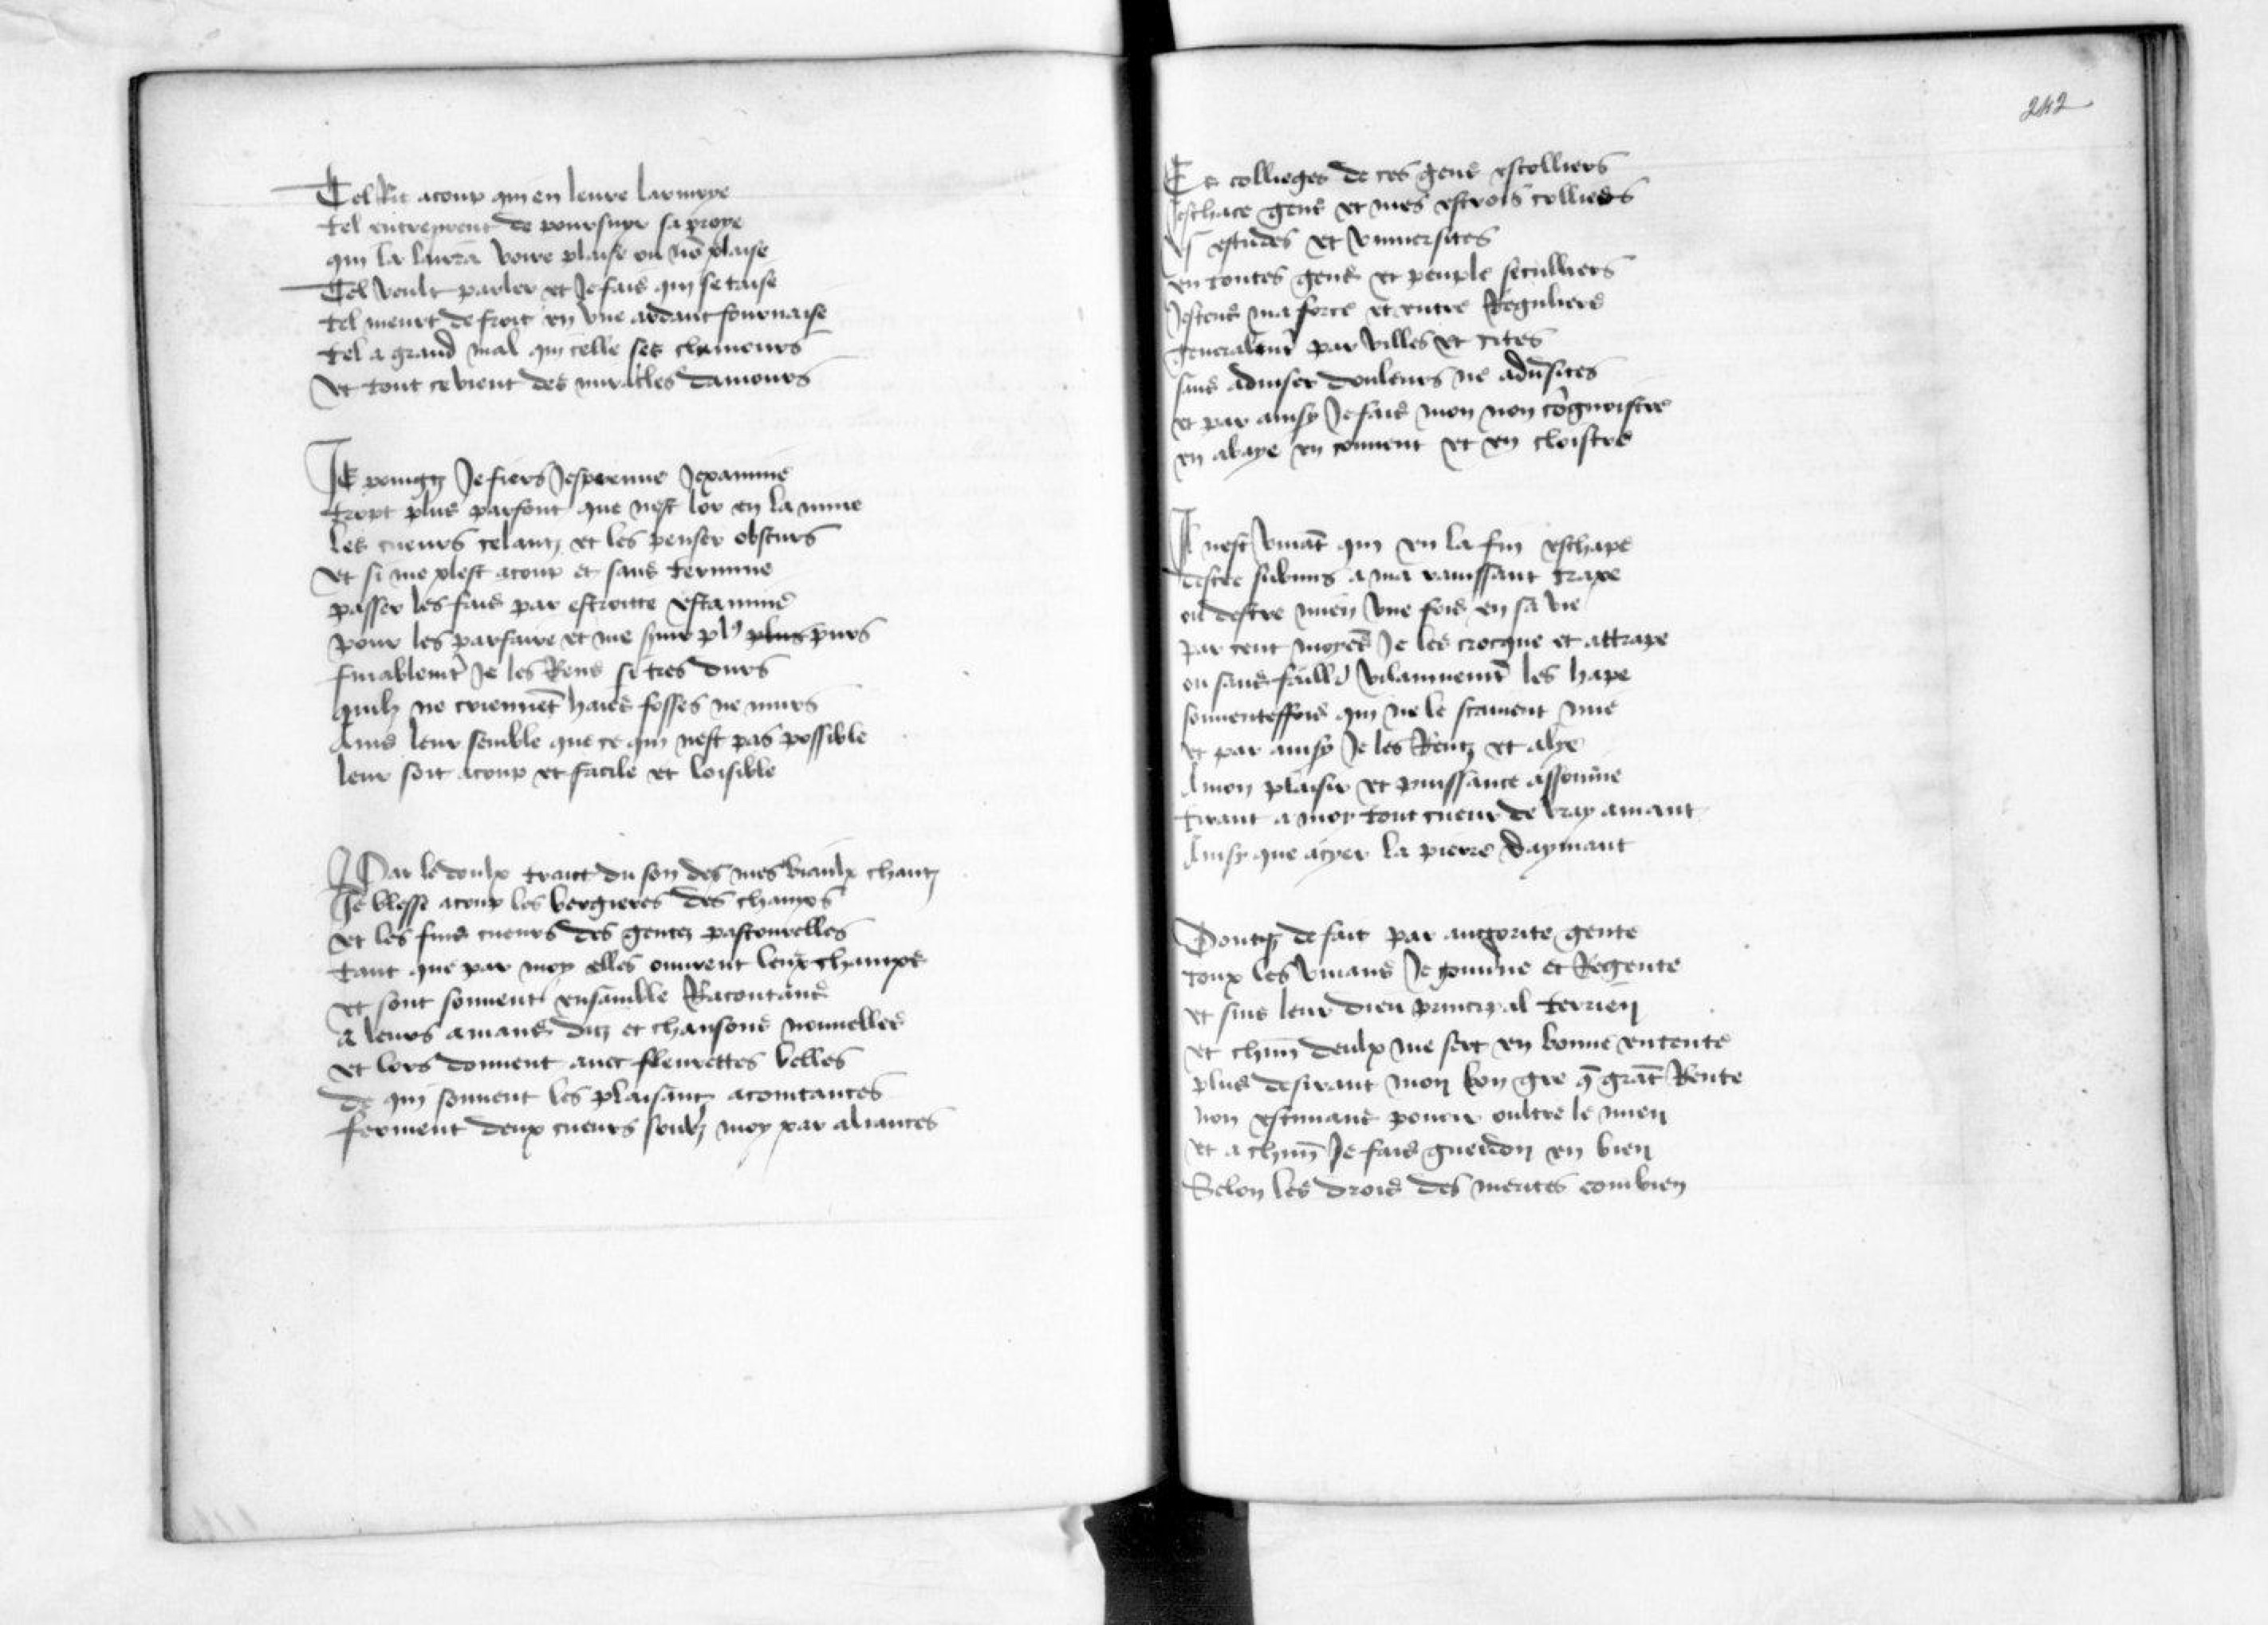 Tel Rit acoup qui en leure larmoye
tel entreprent de poursuyr sa proye
qui la laira voire plaise ou nō plaise
Tel veult parler et Je fais qui se taise
tel meurt de froit en vne ardant fournaise
tel a grand mal qui celle ses clameurs
et tout ce vient des miracles damours
Je poingtz Je fiers Jespreuue Jexamine
tropt plus parfont que nest lor en la mine
les cueurs celantz et les penser obscurs
et si me plest acoup et sans termine
passer les fais par estroitte estamine
pour les parfaire et me pl⁹ plus purs
finablemt Je les Rens si tres durs
quilz ne criennēt haies fosses ne murs
Ains leur semble que ce qui nest pas possible
leur soit acoup et facile et loisible
Par le doulx traict du son des mes biaulx chantz
Je blesse acoup les bergieres des champs
et les fins cueurs des gentez pastourelles
tant que par moy elles euurent leur champs
et sont souuent ensamble Racontans
a leurs amans ditz et chansons nouuelles
et lors donnent auec fleurettes belles
de qui souuent les plaisantz acointances
ferment deux cueurs soubz moy par aliances
242
Es collieges de ces gens escolliers
Jeschace gens et mes estrois colliers
es estudes et vniuersites
en toutes gens et peuple seculliers
Jestens ma force et entre Reguliers
generalemt par villes et cites
sans aduiser douleurs ne aduersites
et par ainsy Je fais mon non cognoistre
en abaye en conuent et en cloistre
Il nest viuāt qui en la fin eschape
destre submis a ma rauissant trape
ou destre mien vne fois en sa vie
par cent moyēs Je les crocque et attrape
ou sans faillir vilainnemt les hape
souuenteffois qui ne le scaiuent mie
et par ainsy Je les Rentz et alye
A mon plaisir et puissance assouuie
tirant a moy tout cueur de vray amant
Ainsy que acyer la pierre daymant
Doncq de fait par auctorite gente
toux les viuans Je gouuerne et Regente
et suis leur dieu principal terrien
et chūn deulx me sert en bonne entente
plus desirant mon bon gre q̄ grāt Rente
non estimans pouoir oultre le mien
et a chūn Je fais guerdon en bien
Selon les drois des merites combien